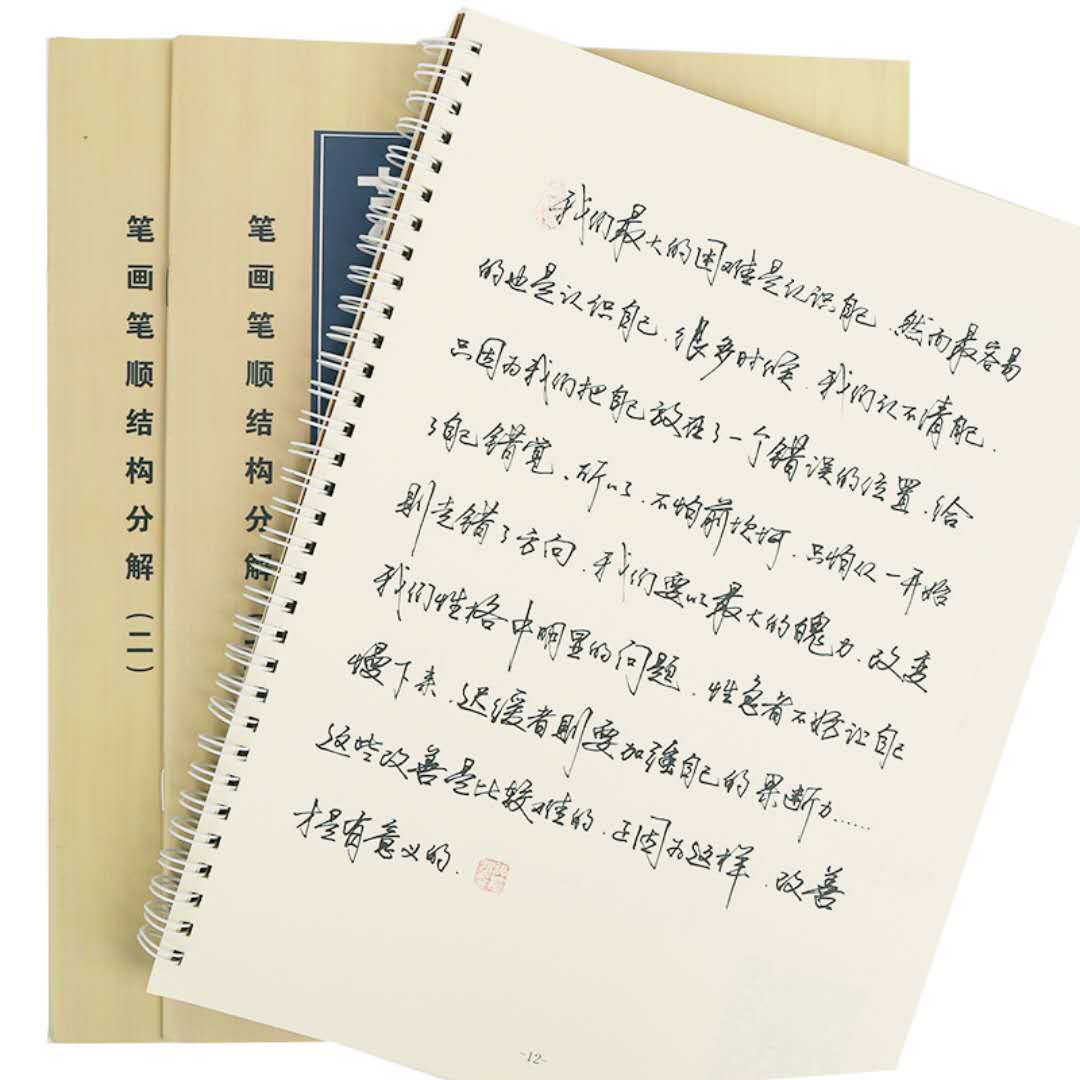 笔画笔顺结构分解（二）
笔画笔顺结构分解
我们最大的困难是认识自己、然而最容易
的也是认识自己、很多时候、我们认不清自己、
只因为我们把自己放在了一个错误的位置、给
了自己错觉、所以、不怕前坎坷、只怕仅一开始
则走错了方向、我们要以最大的魄力、改变
我们性格中明显的问题、性急者不妨让自己
慢下来、迟缓者则要加强自己的果断力……
这些改善是比较难的、正因为这样、改善
才是有意义的、
-12-